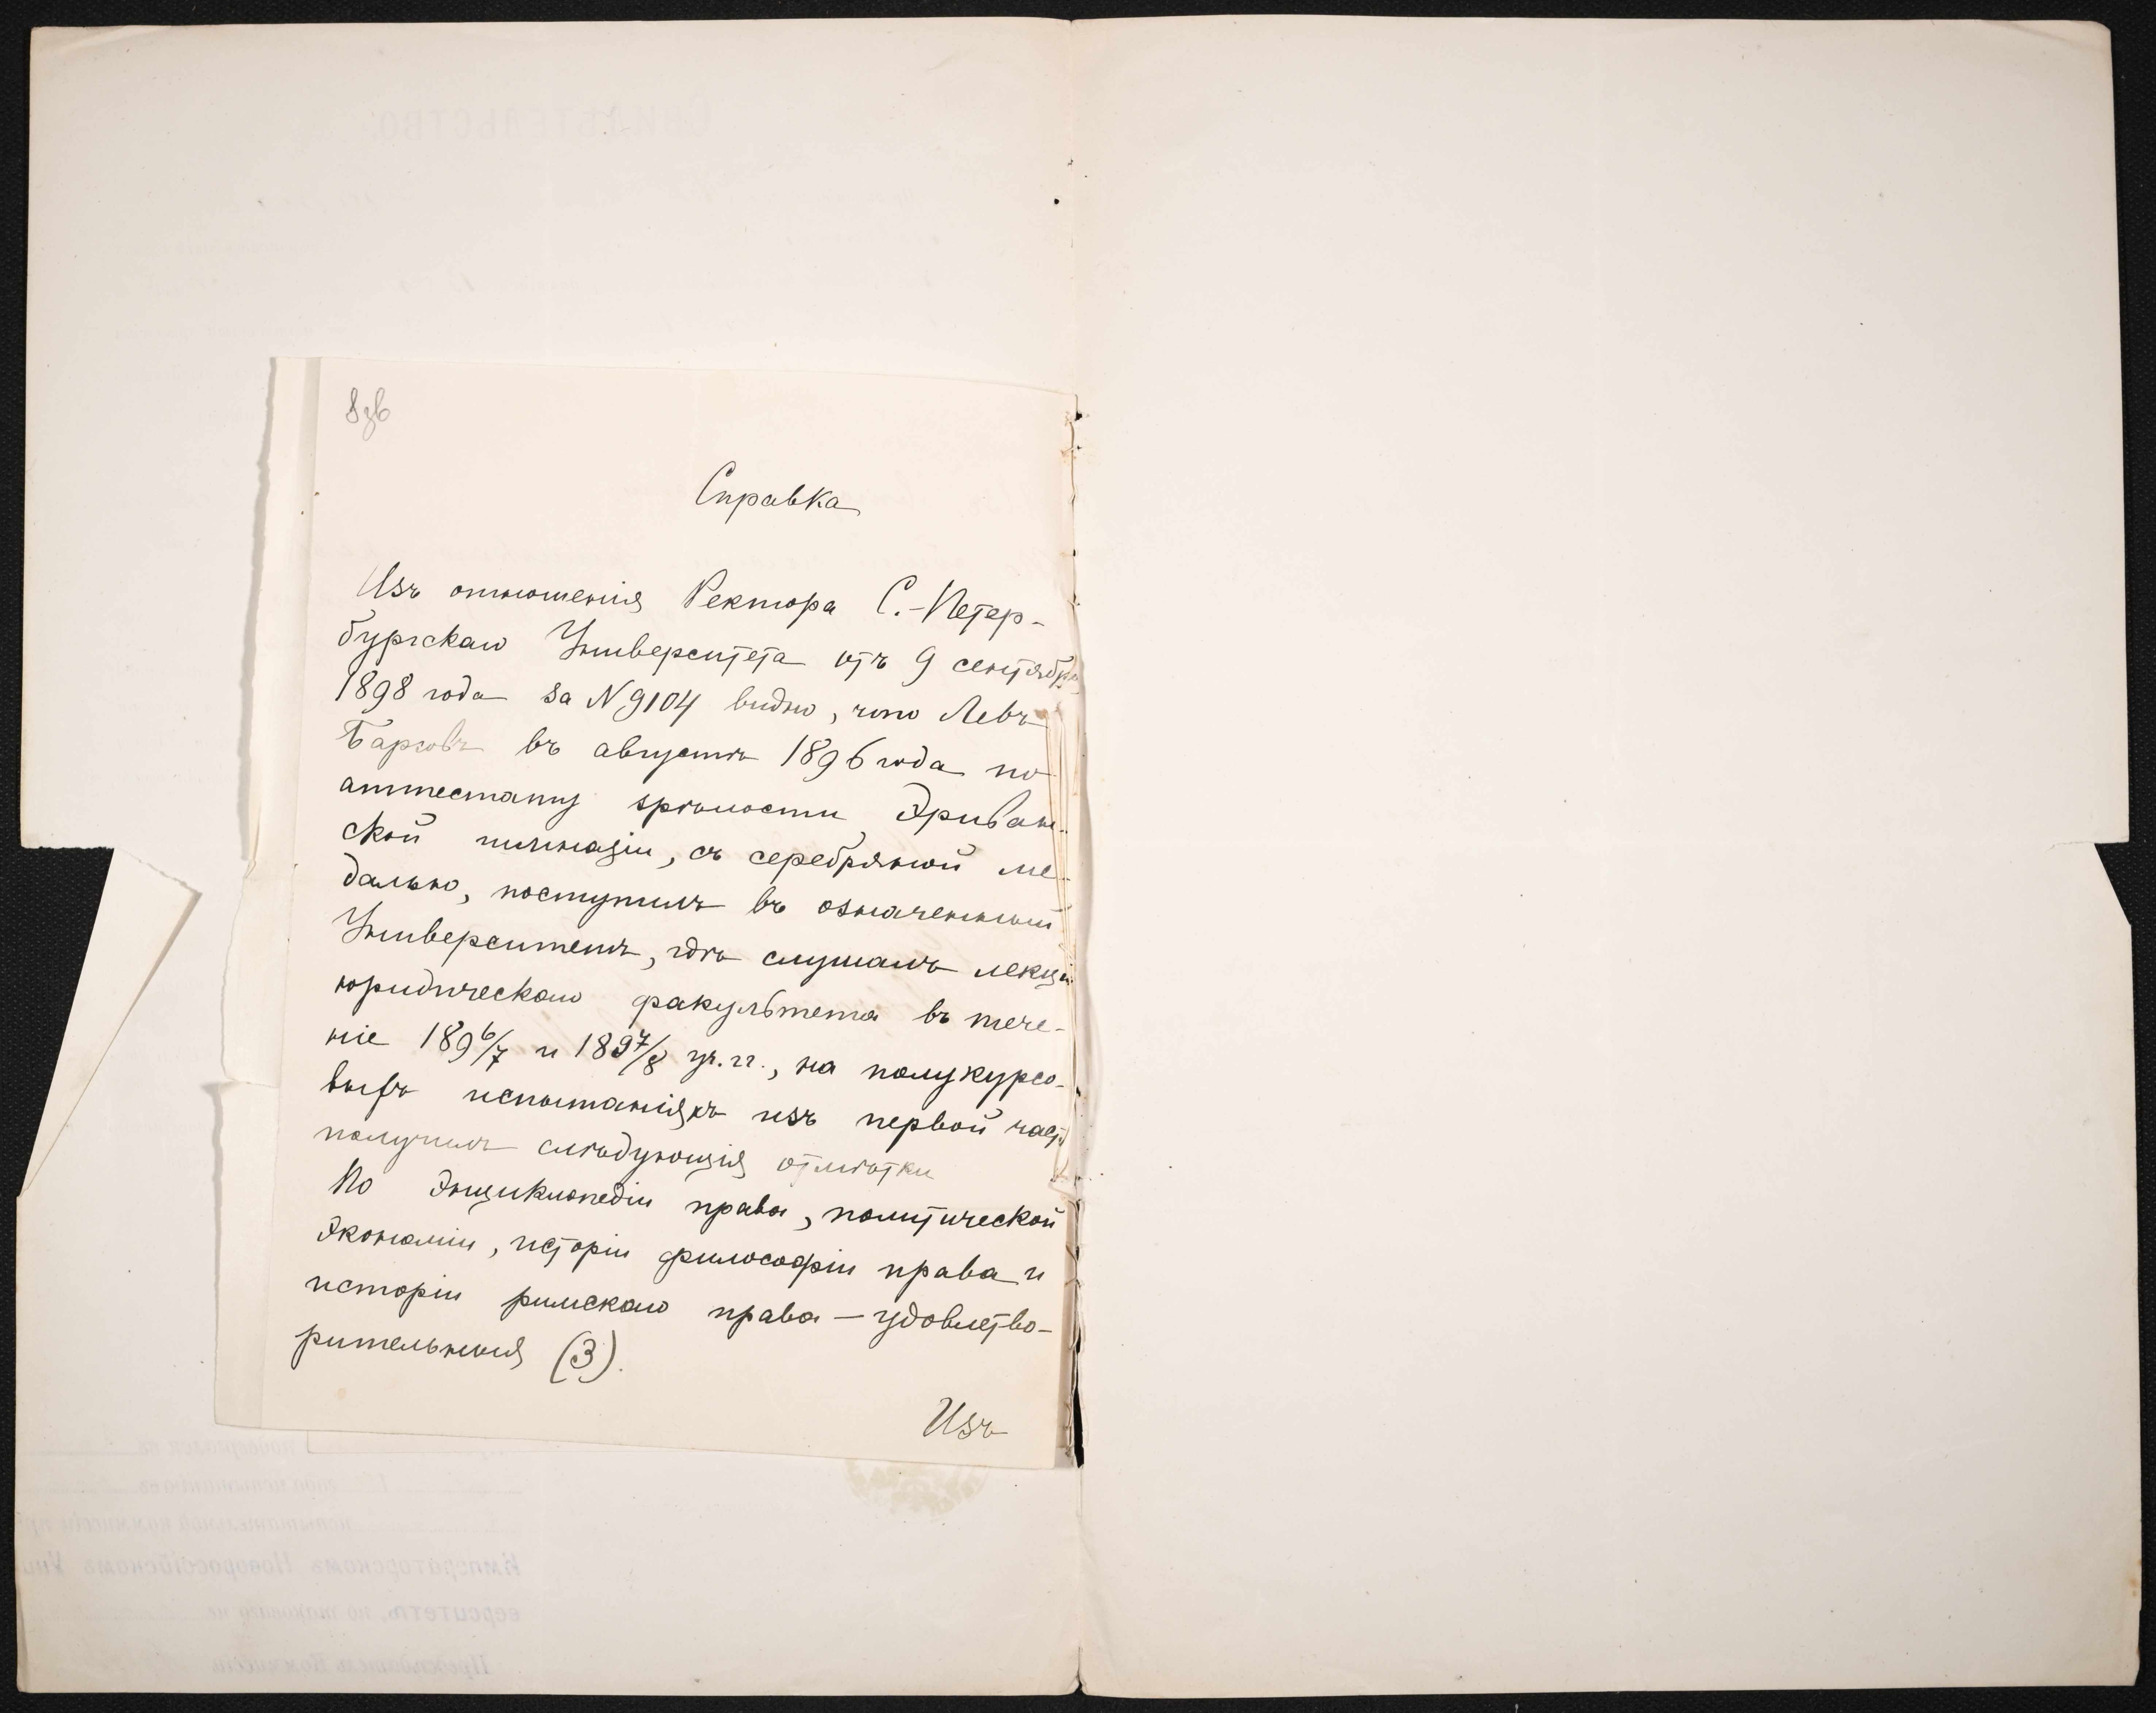 Справка
Изъ отношенія Ректора С.-Петер-
бургскаго Университета отъ 9 сентября
1898 года за N 9104 видно, что Левъ
въ августѣ 1896 года по
аттестату зрѣлости Эриван-
ской гимназіи, съ серебряной ме-
далью, поступилъ въ означенный
Университетъ, гдѣ слушалъ лекціи
юридическаго факультета въ тече-
ніе 1896/7 и 1897/8 уч. гг., на полукурсо-
выхъ испытаніяхъ изъ первой части
получилъ слѣдующія отмѣтки
По энциклопедіи права, политической
экономіи, исторіи философіи права и
исторіи римскаго права — удовлетво-
рительныя (3).
Изъ